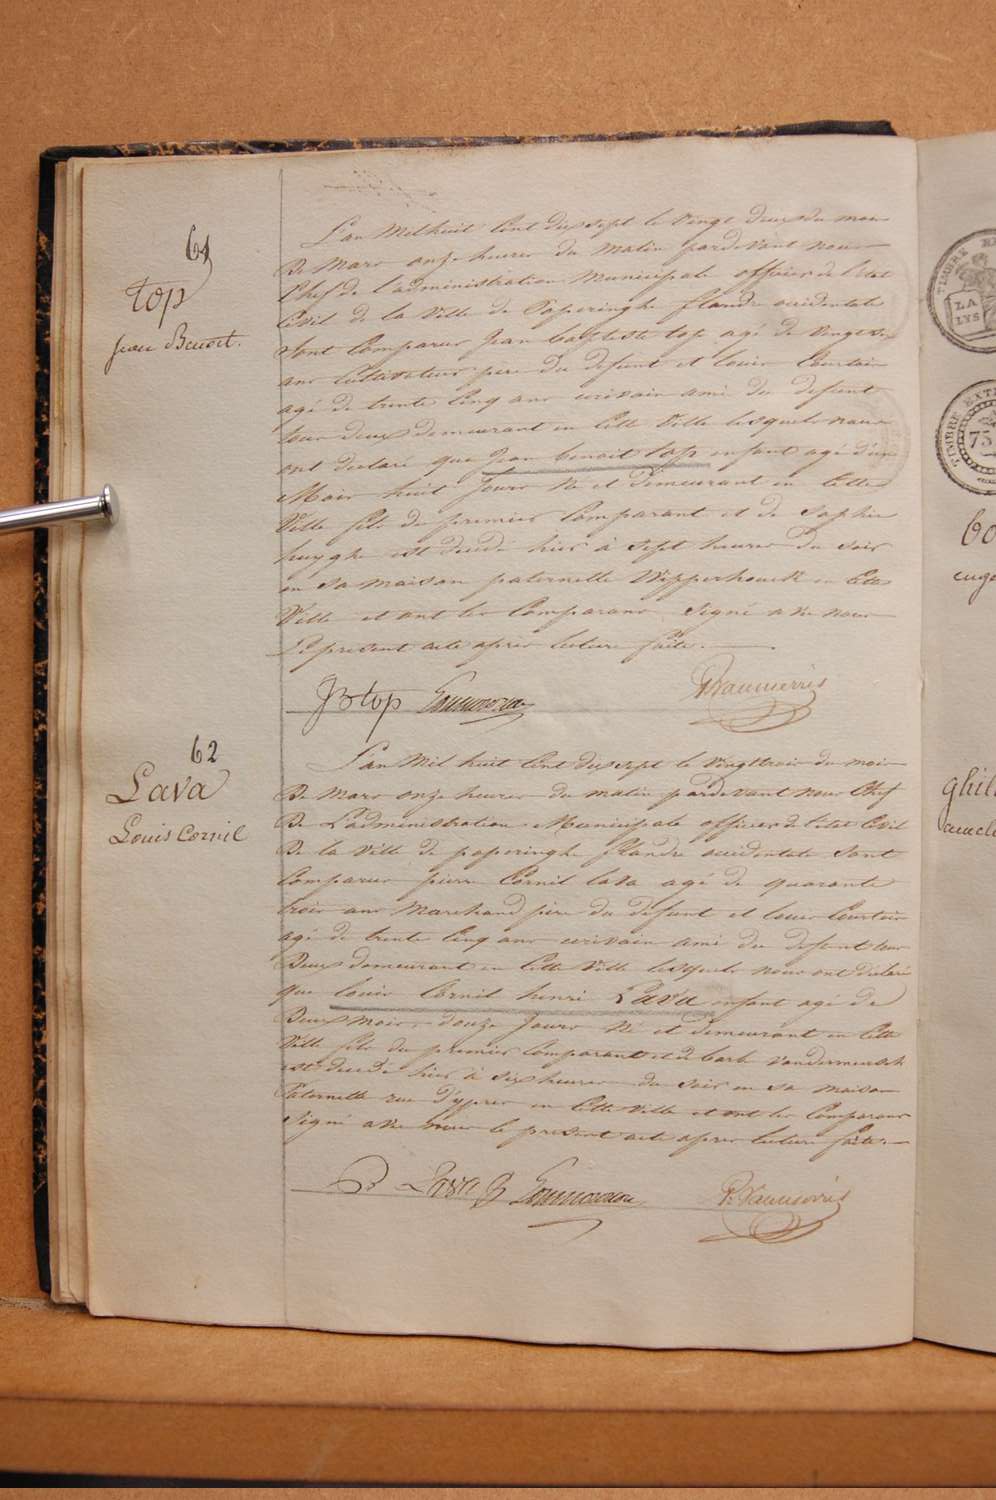 61
top
jean Benoit.
L'an Mil huit Cent dix sept le vingt deux du mois
De Mars onze heures du matin pardevant nous
Chef de l'administration Municipale officier de l'etat
Civil de la Ville de Poperinghe flandre occidentale
sont Comparus Jean baptiste top agé de vingt six
ans Cultivateur pere du defunt et louis Courtois
agé de trente Cinq ans ecrivain ami du defunt
tous deux demeurant en Cette Ville lesquels nous
ont declaré que Jean benoit top enfant agé d'un
Mois huit Jours Né et Demeurant en Cette
Ville fils du premier Comparant et de Sophie
huyghe est decedé hier à sept heures du soir
en sa maison paternelle Wipperhouck en Cette
Ville et ont les Comparans signé avec nous
Le present acte après lecture faite.
JB top
62
Lava
Louis Cornil
L'an Mil huit Cent dix sept le vingttrois du mois
De Mars onze heures du matin pardevant nous Chef
De L'administration Municipale officier de l'etat Civil
De la Ville de poperinghe flandre occidentale sont
Comparus pierre Cornil lava agé de quarante
trois ans Marchand père du defunt et louis Courtois
agé de trente Cinq ans ecrivain ami du defunt tous
Deux demeurant en Cette Ville lesquels nous ont déclaré
que louis Cornil henri Lava enfant agé de
Deux mois, douze Jours Né et demeurant en Cette
Ville fils du premier Comparant et de barbe Vandermersch
est decedé hier à six heures du soir en sa maison
Paternelle rue D'ypres en Cette Ville et ont les Comparans
Signé avec Nous le present acte après lecture faite.
P Lava
TIMBRE
LA
LYS
TIMBRE EXT
75
60
euge
ghil